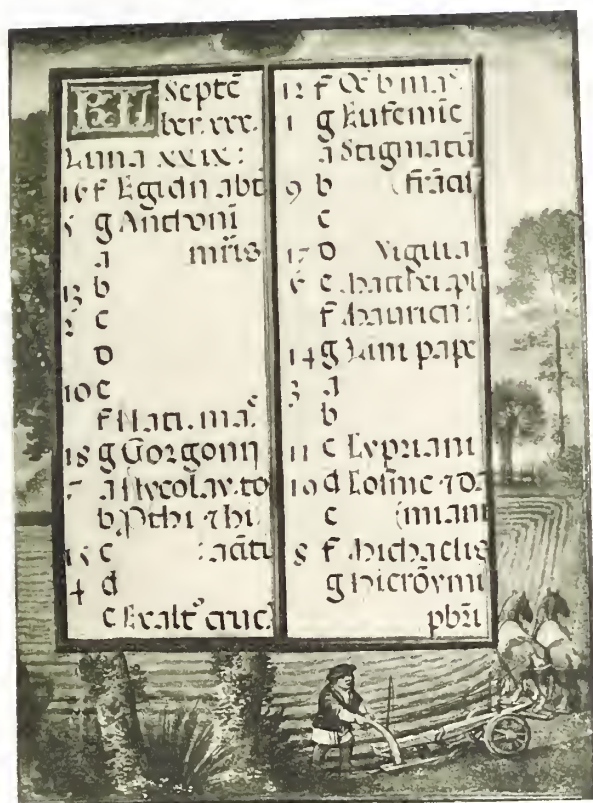 KL Septē
ber. xxx.
Luna xxix:
16 f Egidii abt
5 g Anthoni
a mr̄is
13 b
2 c
D
10 e
f Nati. ma.
18 g Gorgonii
7 a Nycolay. to
b Pthi ⁊ hi
15 c : aciti
4 d
e Exalt crucꝭ
12 f Oc b mar
1 g Eufemie
a Stigmatū
9 b (frāci
c
17 D Vigilia
6 e Mathei apl
f Mauricii:
14 g Lini pape
3 a
b
11 c Cypriani
19 d Cosme ⁊ da
e (miani
8 f Michaelis
g Hierōymi
pbr̄i